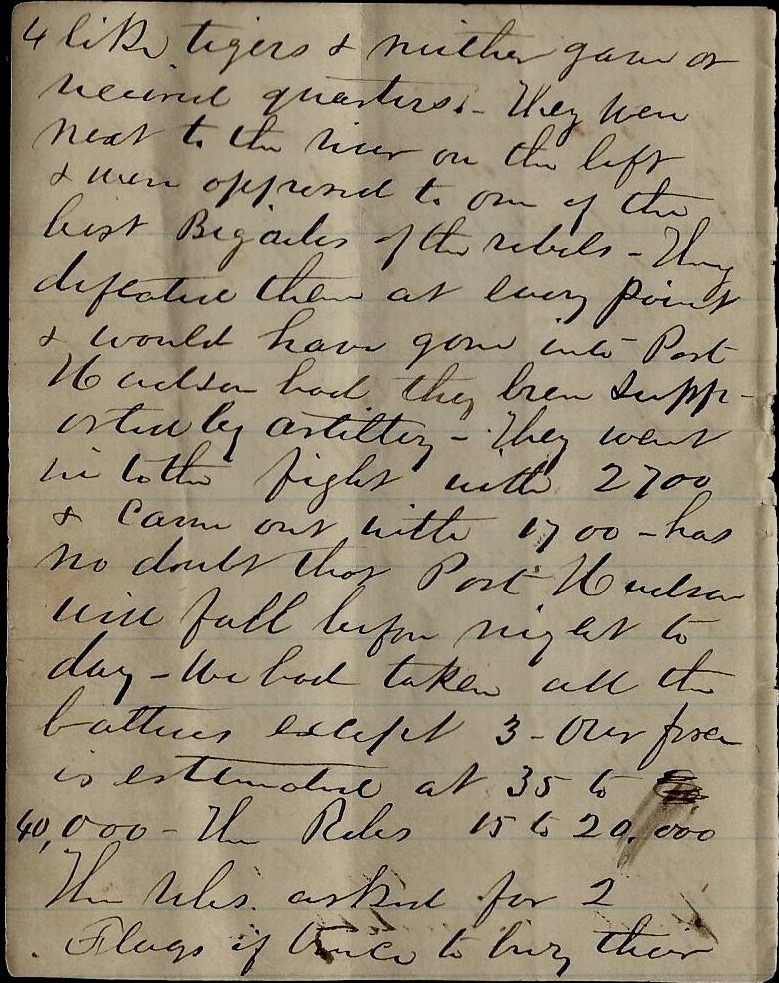 4 like tigers & neither gave or
received quarters. - They were
next to the river on the left
& were opposed to one of the
best Bigades of the rebels - They
defeated them at every point
& would have gone into Port
Hudson had they been supp-
orted by artillery - They went
in to the fight with 2700
& came out with 1700 - has
no doubt that Port Hudson
will fall before night to
day - We had taken all the
batteries except 3 - Our force
is estimated at 35 to
40,000 - The Rebs 15 to 20,000
The Rebs. asked for 2
Flags of truce to bury their